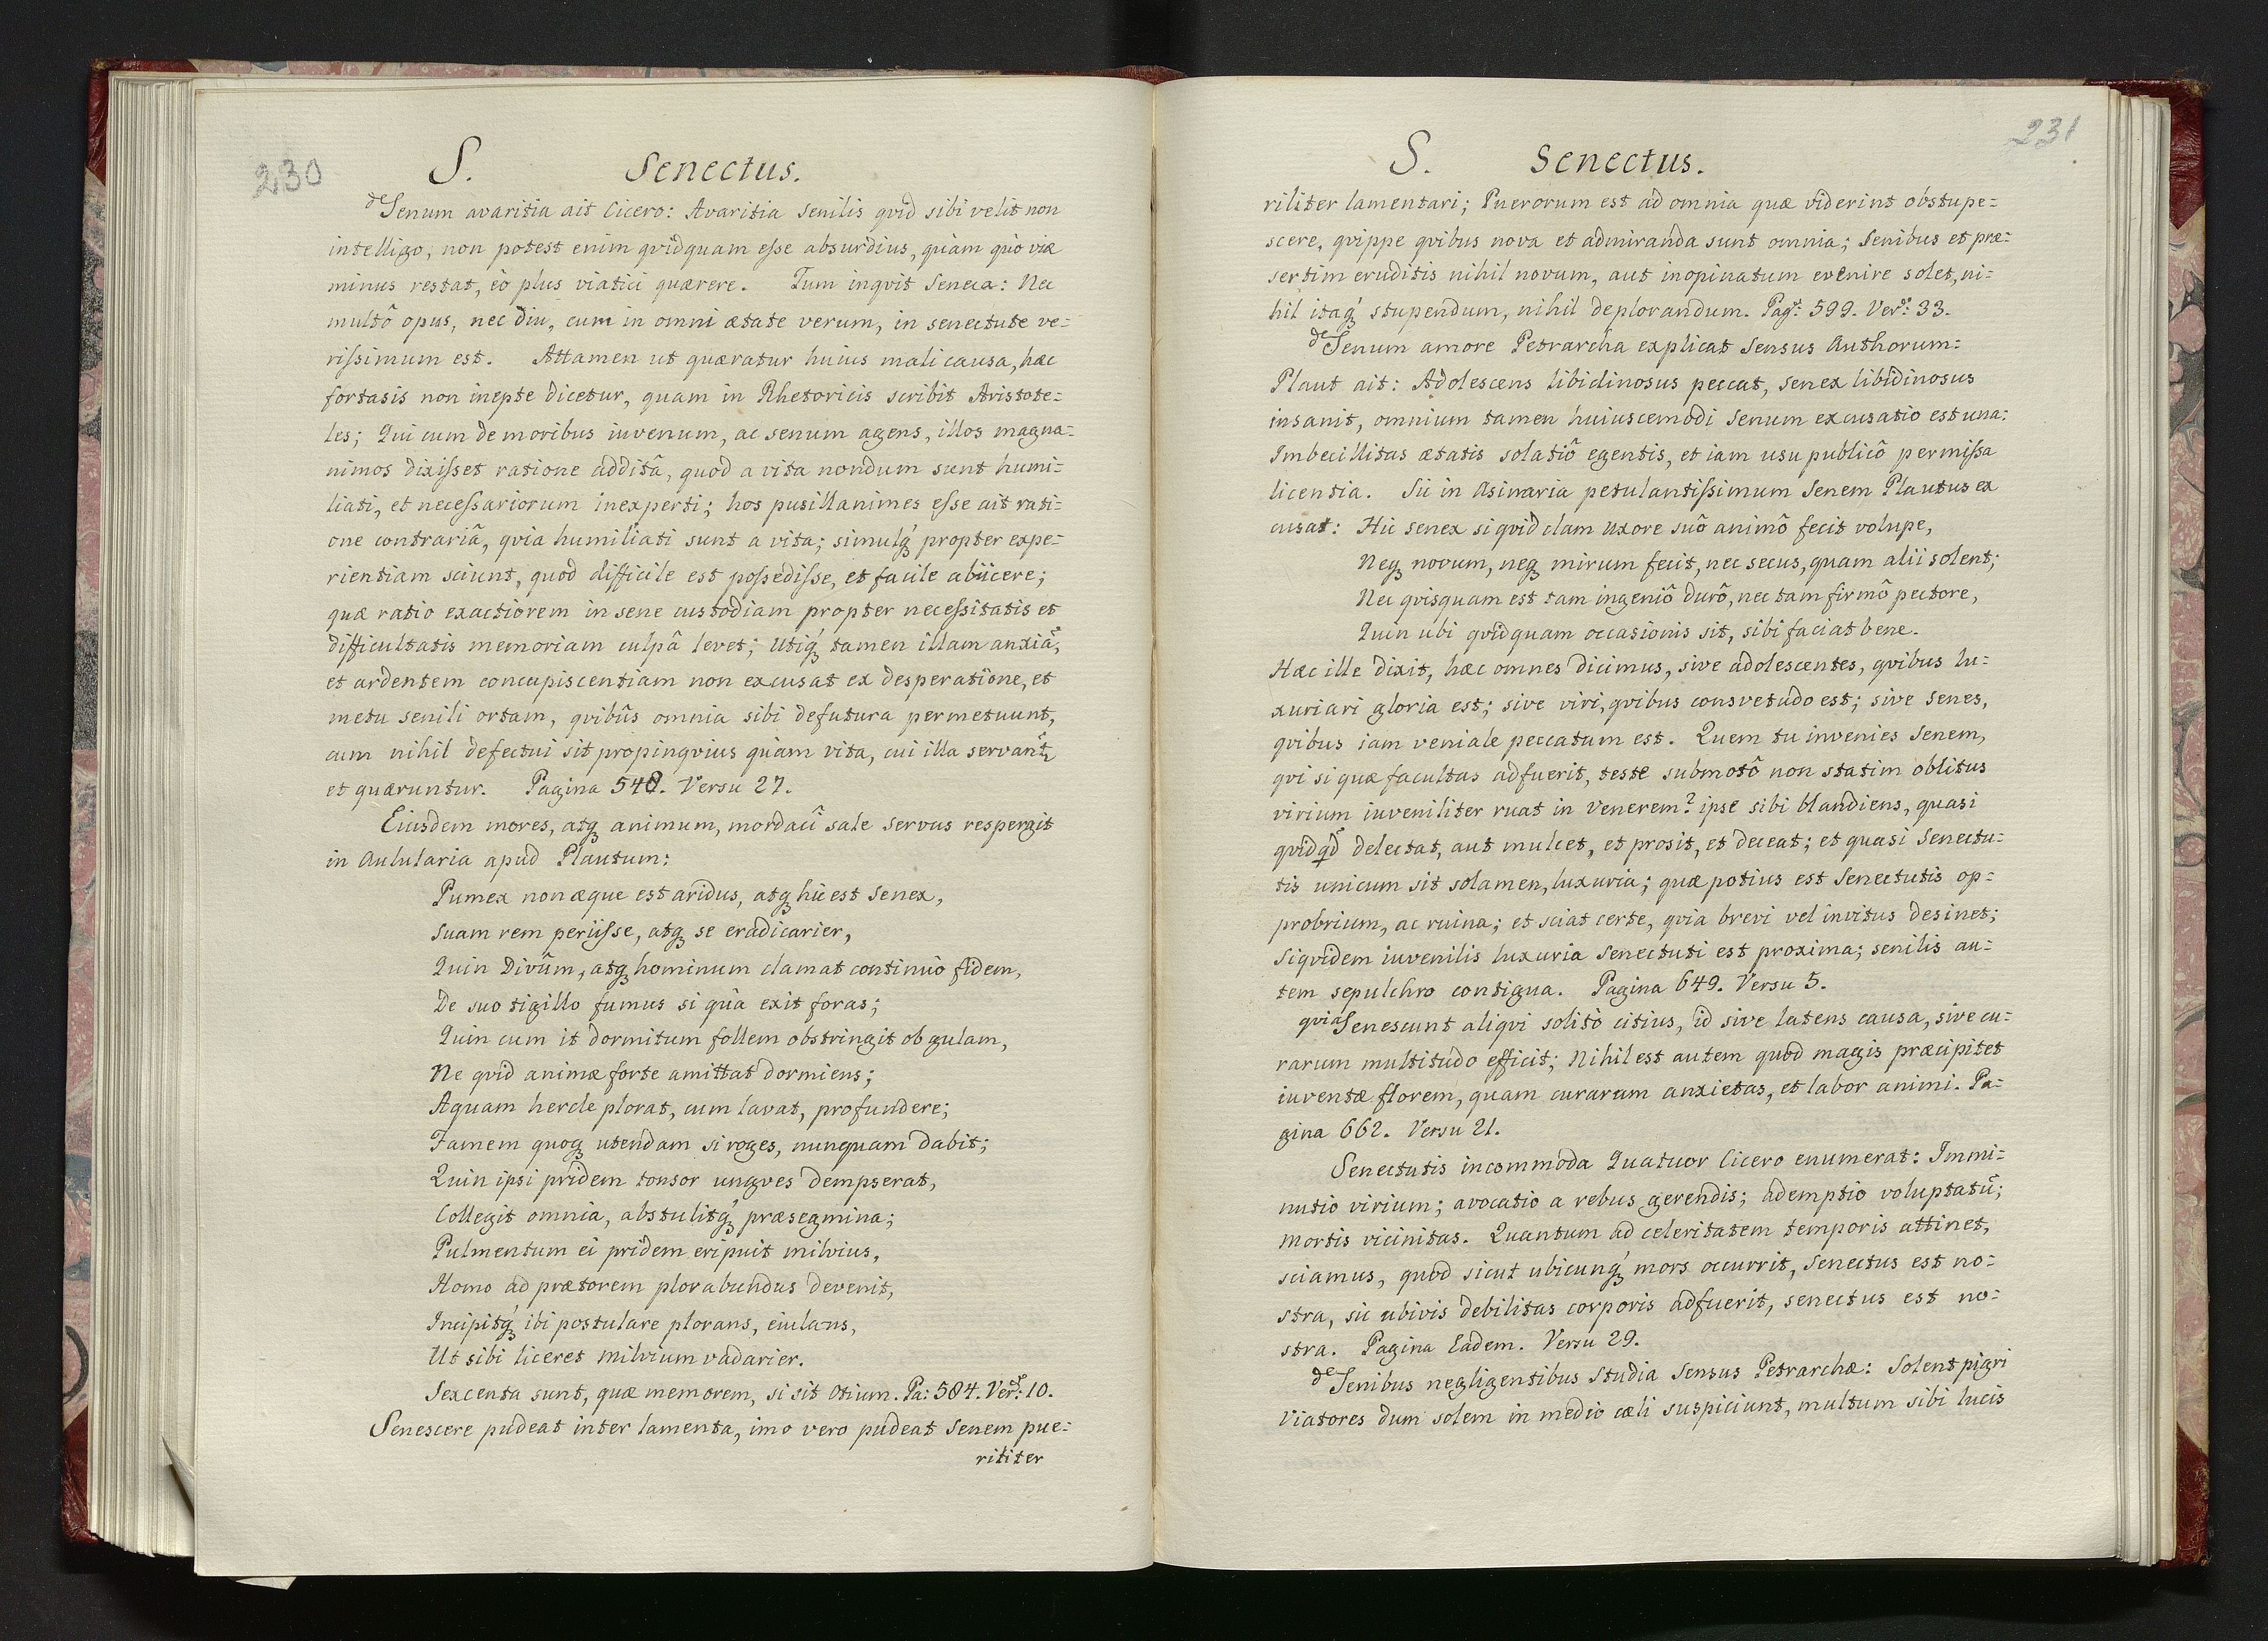 230
S. Senectus.
de Senum avaritia ait Cicero: Avaritia senilis qvid sibi velit non
intelligo, non potest enim qvidquam esse absurdius, quàm quò viæ
minus restat, eò plus viatici quærere. Tum inqvit Seneca: Nec
multô opus, nec diu, cum in omni ætate verum, in senectute ve=
rissimum est. Attamen ut quæratur huius mali causa, hæc
fortasis non inepte dicetur, quam in Rhetoricis scribit Aristote=
les; Qui cum de moribus iuvenum, ac senum agens, illos magna=
nimos dixisset ratione additâ, quod a vita nondum sunt humi=
liati, et necessariorum inexperti; hos pusillanimes esse ait rati=
one contrariâ, qvia humiliati sunt a vita; simulq́ propter expe=
rientiam sciunt, quod difficile est possedisse, et facile abiicere;
quæ ratio exactiorem in sene custodiam propter necessitatis et
difficultatis memoriam culpâ levet; Utiq́ tamen illam anxiã,
et ardentem concupiscentiam non excusat ex desperatione, et
metu senili ortam, qvibus omnia sibi defutura permetuunt,
cum nihil defectui sit propinqvius quàm vita, cui illa servant2
et quæruntur. Pagina 548. Versu 27.
Eiusdem mores, atq animum, mordaci sale servus respergit
in Aulularia apud Plautum:
Pumex non æque est aridus, atq hic est Senex,
Suam rem periisse, atq se eradicarier,
Quin Divûm, atq hominum clamat continuò fidem,
De suo tigillo fumus si quà exit foras;
Quin cum it dormitum follem obstringit ob gulam,
Ne qvid animæ forte amittat dormiens;
Aquam hercle plorat, cum lavat, profundere;
Famem quoq utendam si roges, nunquam dabit;
Quin ipsi pridem tonsor ungves dempserat,
Collegit omnia, abstulitq́ præsegmina;
Pulmentum ei pridem eripuit milvius,
Homo ad prætorem plorabundus devenit,
Incipitq́ ibi postulare plorans, eiulans,
Ut sibi liceret milvium vadarier.
Sexcenta sunt, quæ memorem, si sit otium. Pa: 584. Ver: 10.
Senescere pudeat inter lamenta, imo vero pudeat Senem pue=
rititer
231
S. Senectus.
riliter lamentari; Puerorum est ad omnia quæ viderint obstupe=
scere, qvippe qvibus nova et admiranda sunt omnia; Senibus et præ=
sertim eruditis nihil novum, aut inopinatum evenire solet, ni=
hil itaq́ stupendum, nihil deplorandum. Pag: 599. Ver: 33.
de Senum amore Petrarcha explicat Sensus Authorum:
Plaut ait: Adolescens libidinosus peccat, senex libidinosus
insanit, omnium tamen huiuscemodi Senum excusatio est una:
Imbecillitas ætatis solatiô egentis, et iam usu publicô permissa
licentia. Sic in Asinaria petulantissimum Senem Plautus ex
cusat: Hic senex si qvid clam uxore suô animô fecit volupe,
Neq novum, neq mirum fecit, nec secus, quam alii solent;
Nec qvisquam est tam ingeniô durô, nec tam firmô pectore,
Quin ubi qvidquam occasionis sit, sibi faciat bene.
Hæc ille dixit, hæc omnes dicimus, sive adolescentes, qvibus lu=
xuriari gloria est; sive viri, qvibus consvetudo est; sive Senes,
qvibus iam veniale peccatum est. Quem tu invenies Senem,
qvi si quæ facultas adfuerit, teste submotô non statim oblitus
virium iuveniliter ruat in Venerem? ipse sibi blandiens, quasi
qvidqd delectat, aut mulcet, et prosit, et deceat; et quasi Senectu=
tis unicum sit solamen, luxuria; quæ potius est Senectutis op=
probrium, ac ruina; et sciat certe, qvia brevi vel invitus desinet;
Siqvidem iuvenilis luxuria Senectuti est proxima; senilis au=
tem sepulchro contigua. Pagina 649. Versu 5.
qvia Senescunt aliqvi solitò citius, id sive latens causa, sive cu=
rarum multitudo efficit; Nihil est autem quod magis præcipitet
iuventæ florem, quam curarum anxietas, et labor animi. Pa=
gina 662. Versu 21.
Senectutis incommoda Quatuor Cicero enumerat: Immi=
nutio virium; avocatio a rebus gerendis; ademptio voluptatũ;
mortis vicinitas. Quantum ad celeritatem temporis attinet,
sciamus, quod sicut ubicunq́ mors occurrit, Senectus est no=
stra, sic ubivis debilitas corporis adfuerit, senectus est no=
stra. Pagina Eadem. Versu 29.
de Senibus negligentibus Studia Sensus Petrarchæ: Solent pigri
Viatores dum solem in medio cæli suspiciunt, multum sibi lucis